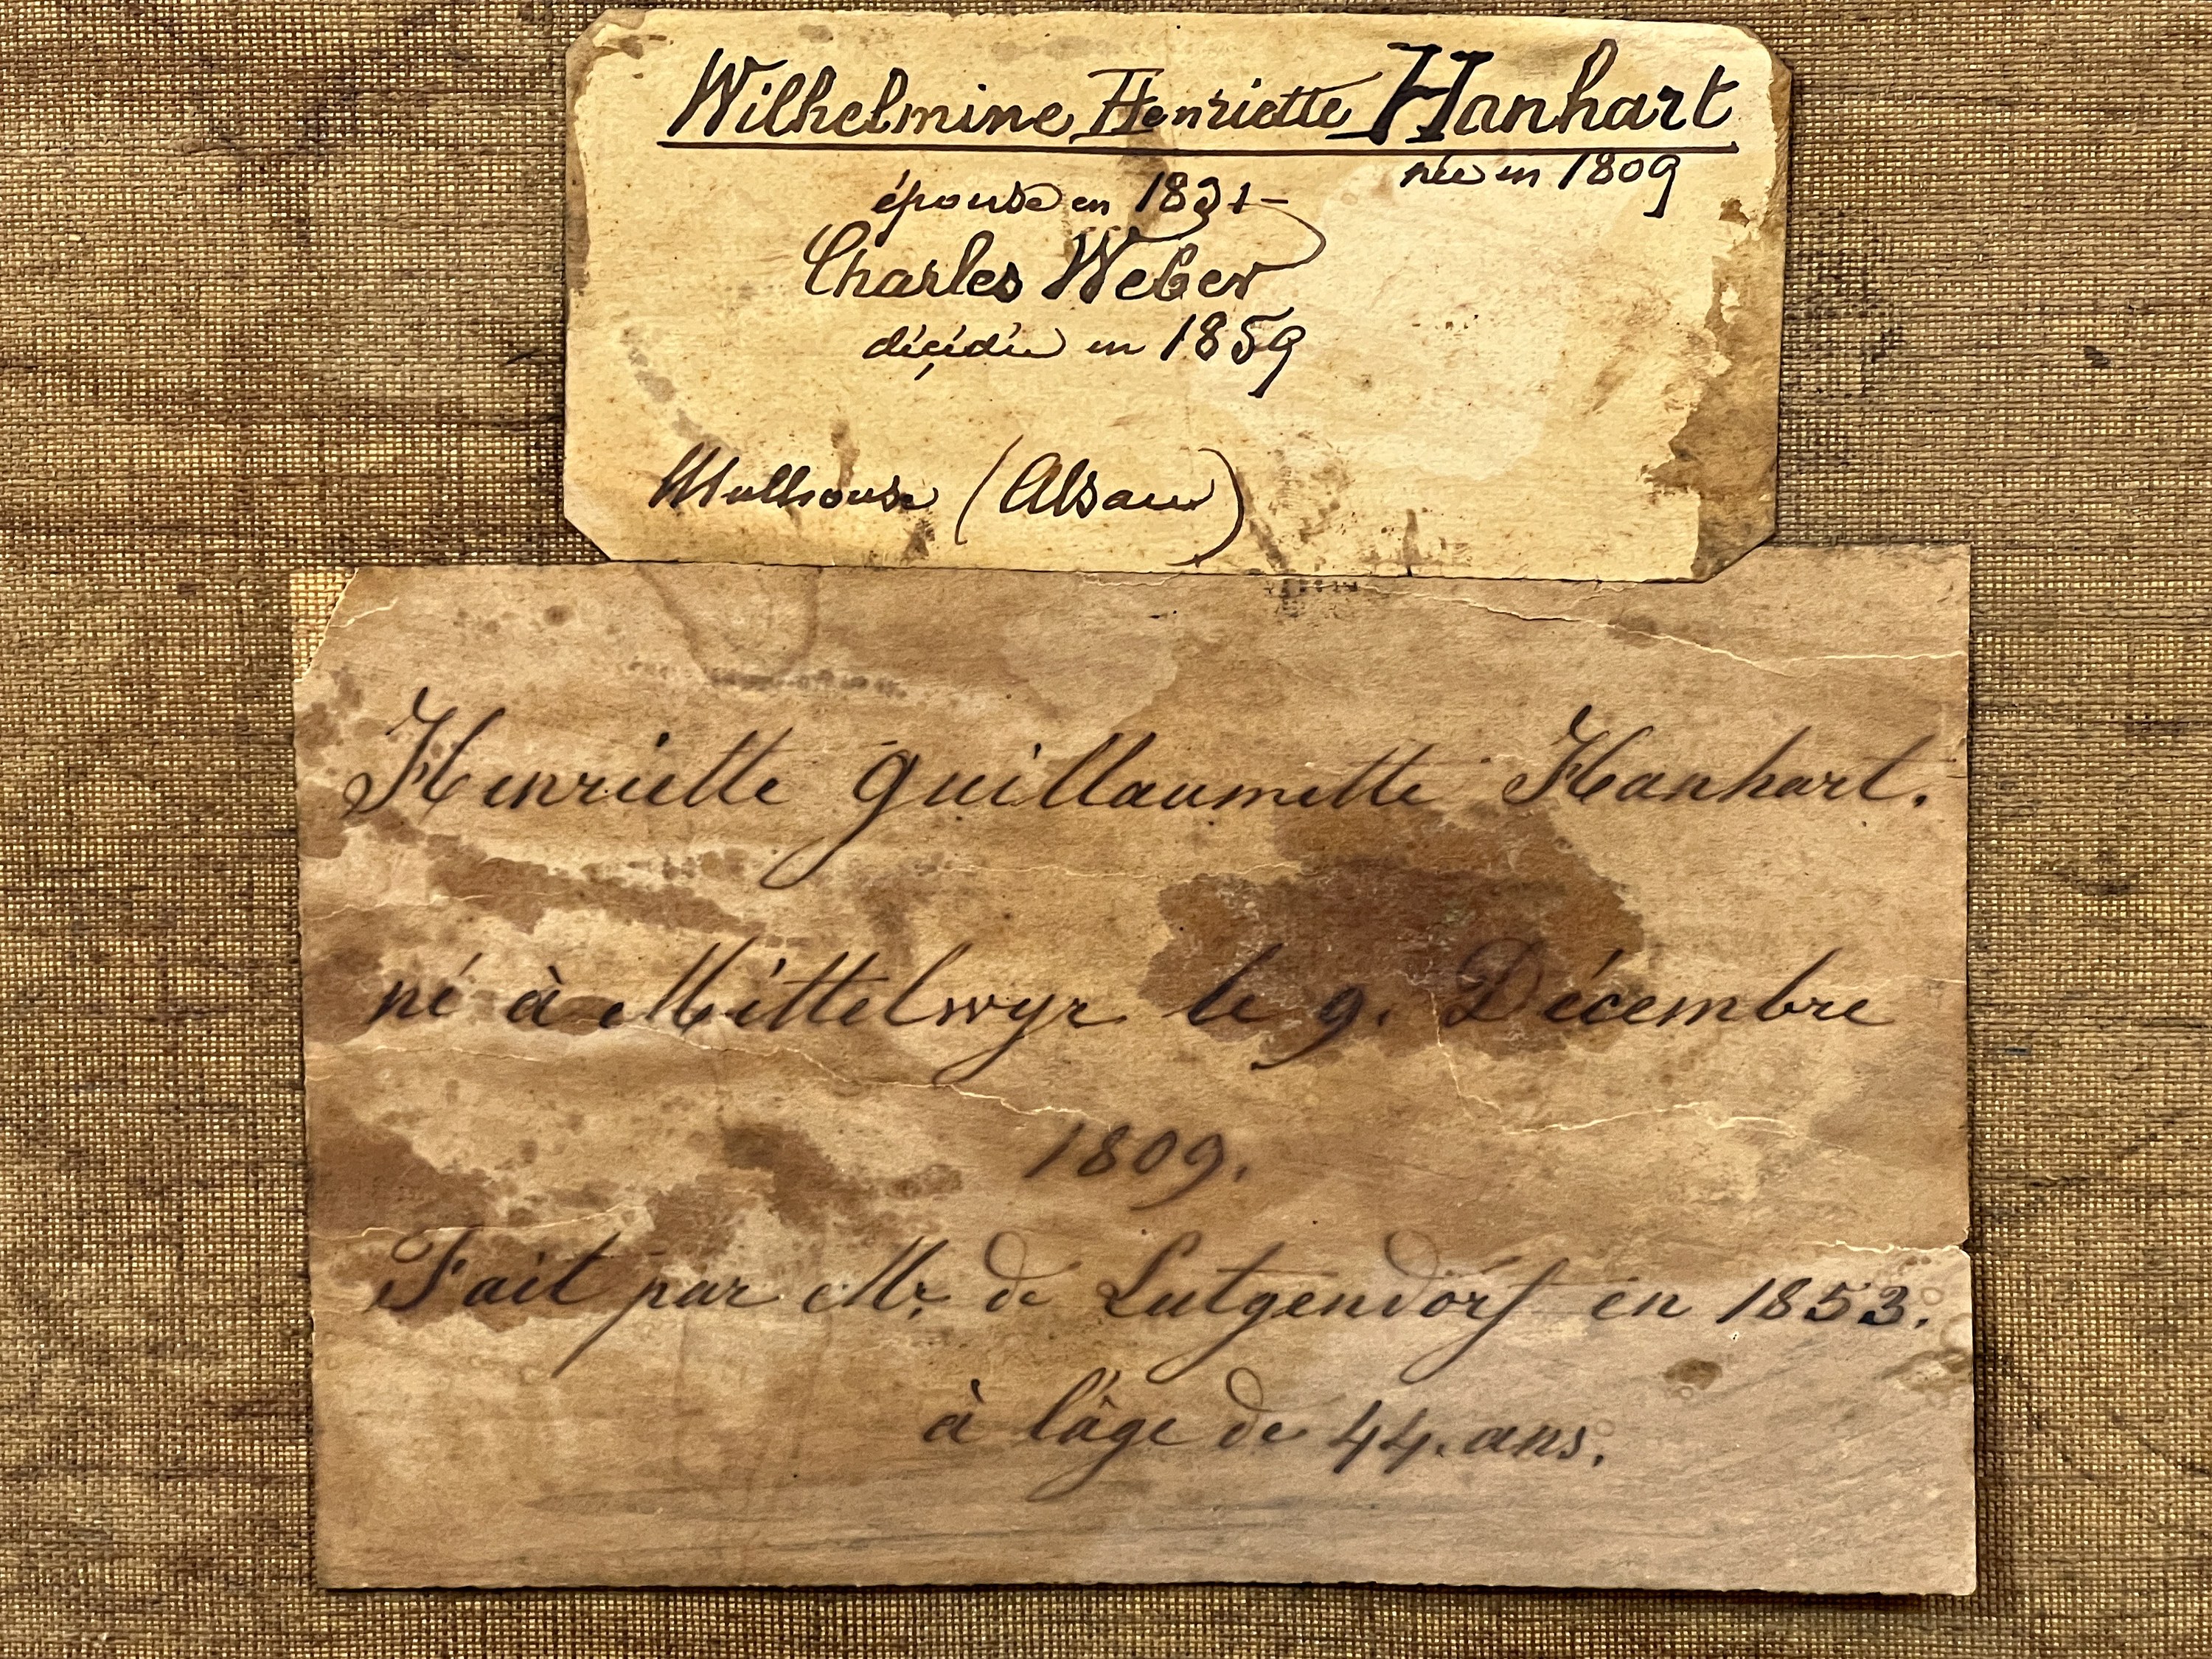 Wilhelmine Henriette Hanhart
née en 1809
épouse en 1831
Charles Weber
décédée en 1859
Mulhouse (Alsace)
Henriette Guillaumette Hanhart.
né à Mittelwyr le 9. Décembre
1809.
Fait par Mr. de Lutgendorf en 1853.
à l'âge de 44. ans.